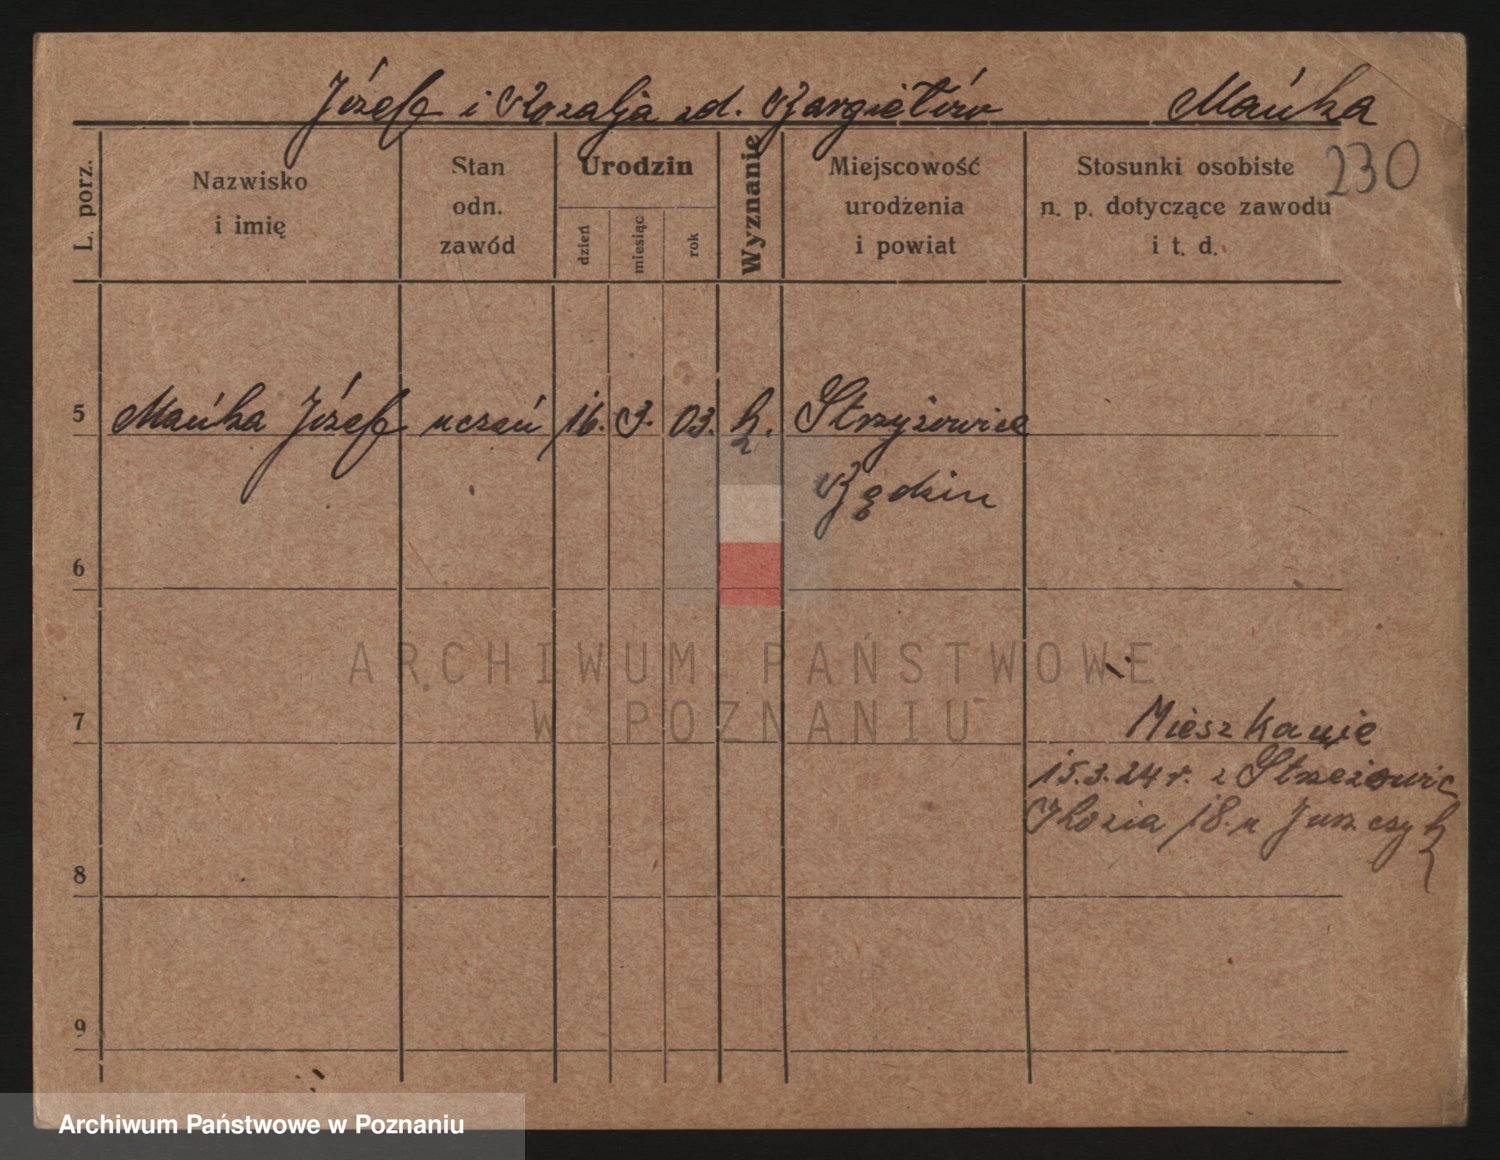 Józef i Rozalja zd. Bargiełów Mańka
230
L. porz.
Nazwisko
i imię
Stan
odn.
zawód
Urodzin
dzień
miesiąc
rok
Wyznanie
Miejscowość
urodzenia
i powiat
Stosunki osobiste
n. p. dotyczące zawodu
i t. d.
5 Mańka Józef uczeń 16. 3. 03. k. Strzyżowice
Będzin
6
ARCHIWUM PAŃSTWOWE
W POZNANIU
7
Mieszkanie
15.3.24 r. z Strzeżowic
18. u Jurczyk
8
9
Archiwum Państwowe w Poznaniu